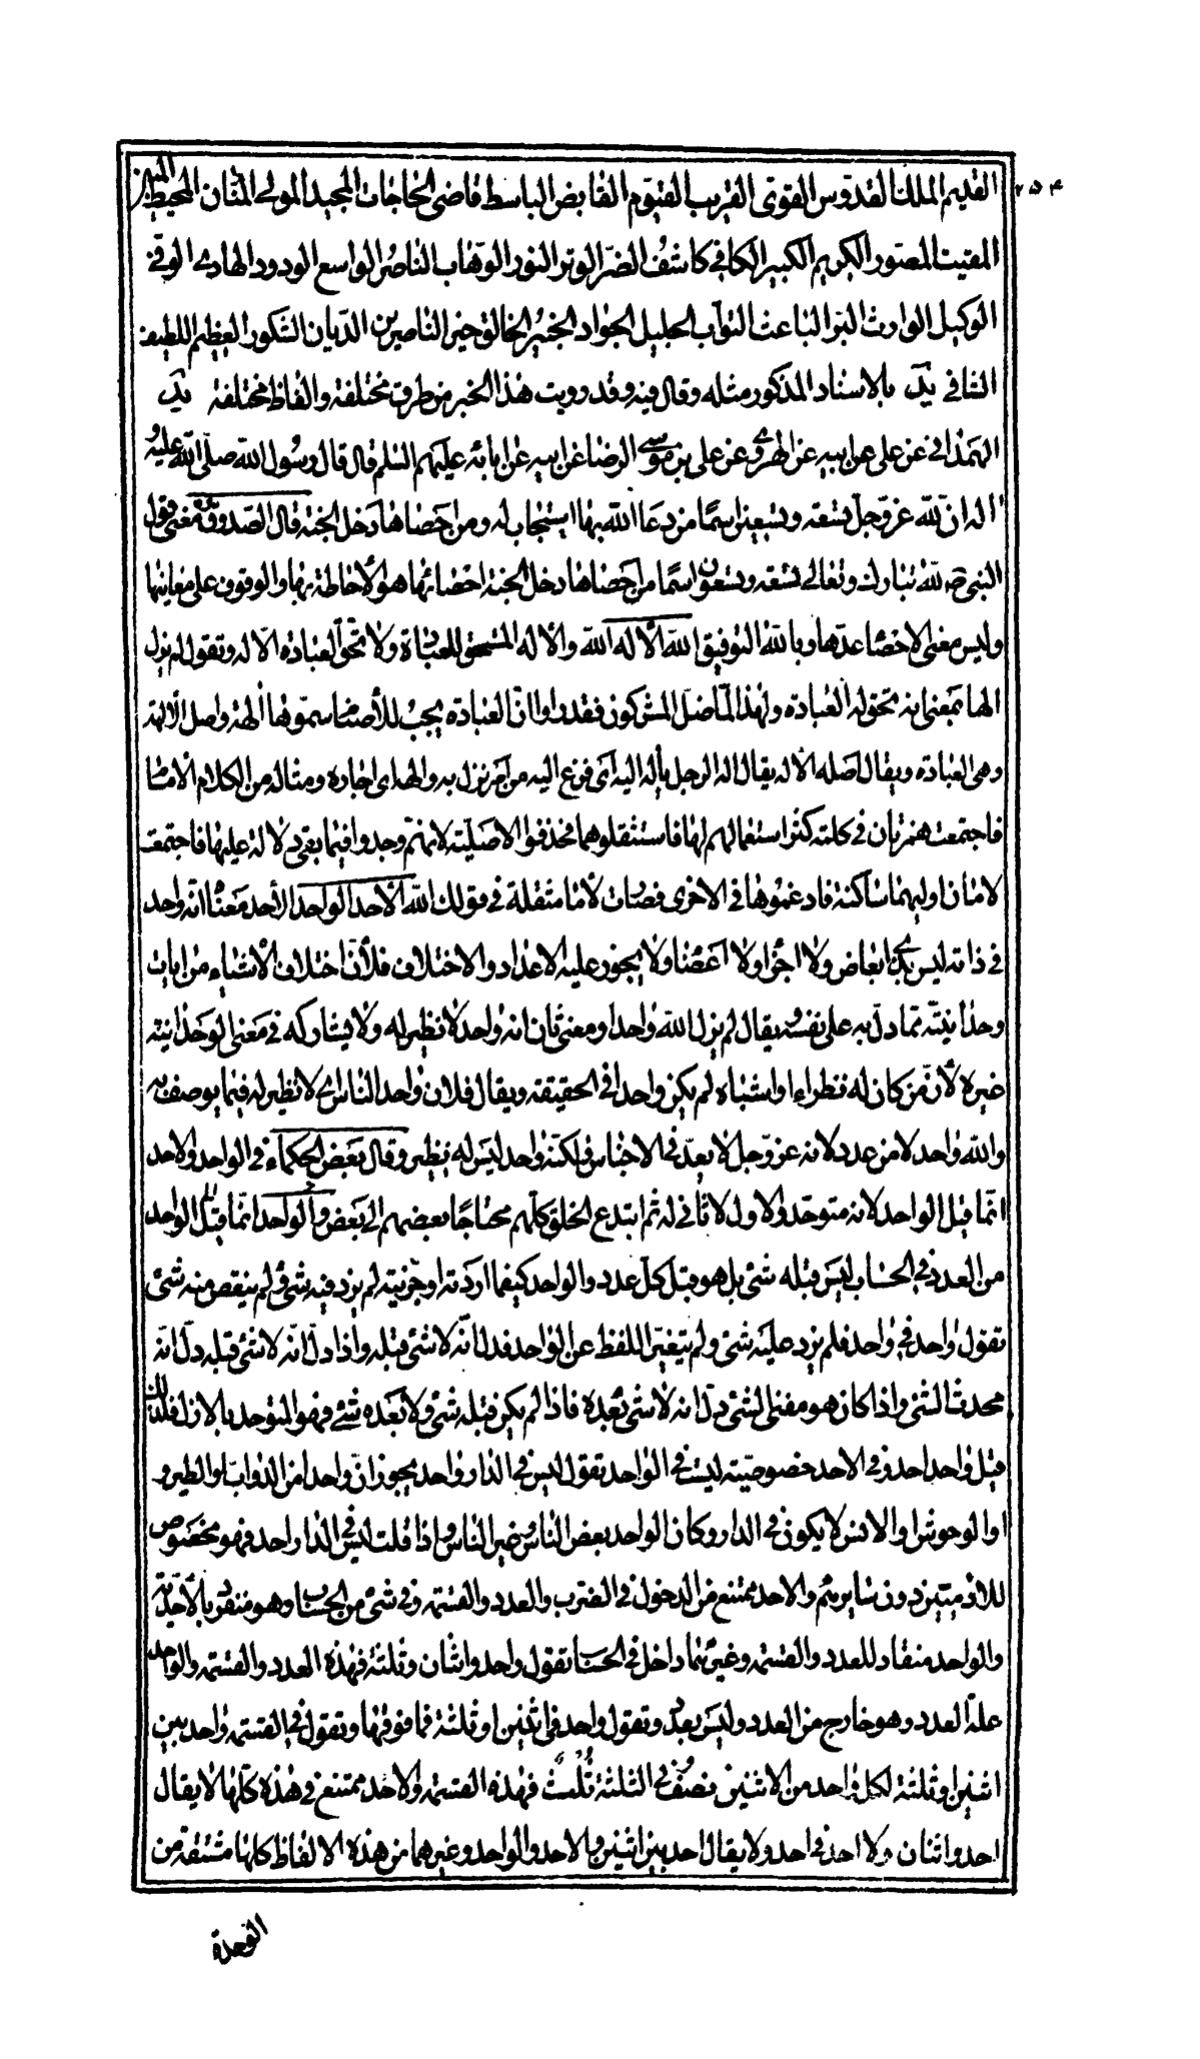 ٢٥٤
القديم الملك القدوس القوى القريب القيوم القابض الباسط قاضى الحاجات المجيد المولى المنان المحيط المبين
المقيت المصور الكريم الكبير الكافي كاشف الضر الوتر النور الوهاب الناصر الواسع الودود الهادي الوفى
الوكيل الوارث البر الباعث التواب الجليل الجواد الخبير الخالق خير الناصرين الديان الشكور العظيم اللطيف
الشافى يد بالاسناد المذكور مثله وقال فيه وقد رويت هذا الخبر من طرق مختلفة والفاظ مختلفة يد
الهمدانى عن على عن ابيه عن الهروي عن على بن موسى الرضا عن ابيه عن ابائه عليهم السلم قال قال رسول الله صلى الله عليه و
اله ان لله عز وجل تسعة وتسعين اسما من دعا الله بها استجاب له ومن احصاها دخل الجنة قال الصدوق ره معنى قول
النبى ص لله تبارك وتعالى تسعة وتسعون اسما من احصاها دخل الجنة احصائها هو الاحاطة بها والوقوف على معانيها
وليس معنى الاحصا عدها وبالله التوفيق الله الاله الله والاله المستحق للعبادة ولا تحق العبادة الا له وتقول لم يزل
الها بمعنى انه تحق له العبادة ولهذا لما ضل المشركون فقدروا ان العبادة يجب للاصنام سموها الهة واصل الالهة
وهى العبادة ويقال اصله الاله يقال اله الرجل ياله اليه اى فزع اليه من امر نزل به والهه اى اجاره ومثاله من الكلام الامام
فاجتمعت همزتان فى كلمة كثر استعمالهم لها فاستثقلوهما فحذفوا الاصلية لانهم وجدوا فيما بقى دلالة عليها فاجتمعت
لامان اوليهما ساكنة فادغموها فى الاخرى فصارت لاما مثقلة فى قولك الله الاحد الواحد الاحد معناه انه واحد
فى ذاته ليس بذي ابعاض ولا اجزا ولا اعضا ولا يجوز عليه الاعداد والاختلاف فلان اختلاف الاشياء من ايات
وحدانيته مما دل به على نفسه ويقال لم يزل الله واحدا ومعنى ثان انه واحد لا نظير له ولا يشاركه فى معنى الوحدانية
غيره لان من كان له نظراء او اشباه لم يكن واحدا فى الحقيقة ويقال فلان واحد الناس اي لا نظير له فيما يوصف به
والله واحد لا من عدد لانه عز وجل لا يعد فى الاجناس ولكنه واحد ليس له نظير وقال بعض الحكماء فى الواحد والاحد
انما قيل الواحد لانه متوحد والاول لا ثانى له ثم ابتدع الخلق كلهم محتاجا بعضهم الى بعض والواحد انما قيل الواحد
من العدد فى الحساب ليس قبله شئ بل هو قبل كل عدد والواحد كيفما اردته او جزيته لم يزد فيه شئ ولم ينقص منه شئ
تقول واحد فى واحد فلم يزد عليه شئ ولم يتغير اللفظ عن الواحد فدل انه لا شئ قبله واذا دل انه لا شئ قبله دل انه
محدث الشئ واذا كان هو مفنى الشئ دل انه لا شئ بعده فاذا لم يكن قبله شئ ولا بعده شئ فهو المتوحد بالازل فلذلك
قيل واحد احد وفى الاحد خصوصية ليست فى الواحد تقول ليس فى الدار واحد يجوز ان واحدا من الدواب او الطير و
او الوحوش او الانس لا يكون فى الدار وكان الواحد بعض الناس وغير الناس واذا قلت ليس فى الدار احد فهو مخصوص
للادميين دون سايرهم والاحد ممتنع من الدخول فى الضرب والعدد والقسمة وفى شئ من الحساب وهو متفرد بالاحدية
والواحد منقاد للعدد والقسمة وغيرهما داخل فى الحساب تقول واحد واثنان وثلثة فهذه العدد والقسمة والواحد
علة العدد وهو خارج من العدد وليس بعدد وتقول واحد فى اثنين او ثلثة فما فوقها وتقول فى القسمة واحد بين
اثنين او ثلثة لكل واحد من الاثنين نصف فى الثلثة ثلث فهذه القسمة والاحد ممتنع فى هذه كلها لا يقال
احد واثنان ولا احد فى احد ولا يقال احد بين اثنين والاحد والواحد وغيرهما من هذه الالفاظ كلها مشتقة من
الوحدة